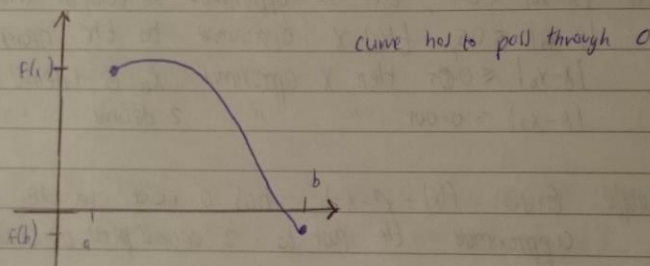 curve has to pass through 0
f(a)
b
f(b)
a